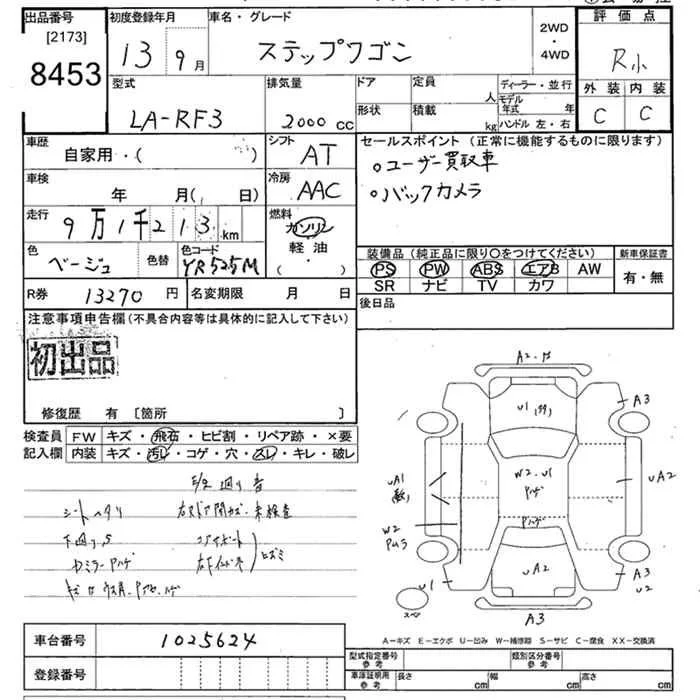 出品番号
[2173]
8453
初度登録年月
13 9月
車名・グレード
ステップワゴン
2WD
・
4WD
評価点
R小
外装 内装
C C
型式
LA-RF3
排気量
2000 CC
ドア
定員
人
形状
積載
kg
ディーラー・並行
モデル年式 年
ハンドル 左・右
車歴
自家用・( )
シフト
AT
セールスポイント (正常に機能するものに限ります)
○ユーザー買取車
○バックカメラ
車検
年 月( 日)
冷房
AAC
走行
9万1千213km
燃料
ガソリン
軽油
( ・ )
色
ベージュ
色替
色コード
YR525M
装備品 (純正品に限り○をつけてください)
新車保証書
PS PW ABS エアB AW
SR ナビ TV カワ
有・無
R券 13270円
名変期限 月 日
後日品
注意事項申告欄(不具合内容等は具体的に記入して下さい)
初出品
修復歴 有 〔箇所 〕
検査員記入欄
FW キズ・飛石・ヒビ割・リペア跡・×要
内装 キズ・汚レ・コゲ・穴・スレ・キレ・破レ
シートヘタリ
下廻りS
A2
U1
A3
UA1
W2・U1
UA2
W2
UA2
A3
U1
U2
A3
A−キズ E−エクボ U−凹み W−補修跡 S−サビ C−腐食 XX−交換済
車台番号 1025624
登録番号
型式指定番号
参考
類別区分番号
参考
車庫証明用
参考
長さ cm 幅 cm 高さ cm